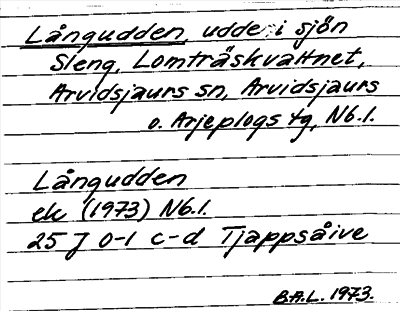 Långudden, udde i sjön
Sleng, Lomträskvattnet,
Arvidsjaurs sn, Arvidsjaurs
o. Arjeplogs tg, Nb.l.
Långudden
ek (1973) Nb.l.
25 J 0-1 c-d Tjappsåive
B.A.L. 1973.